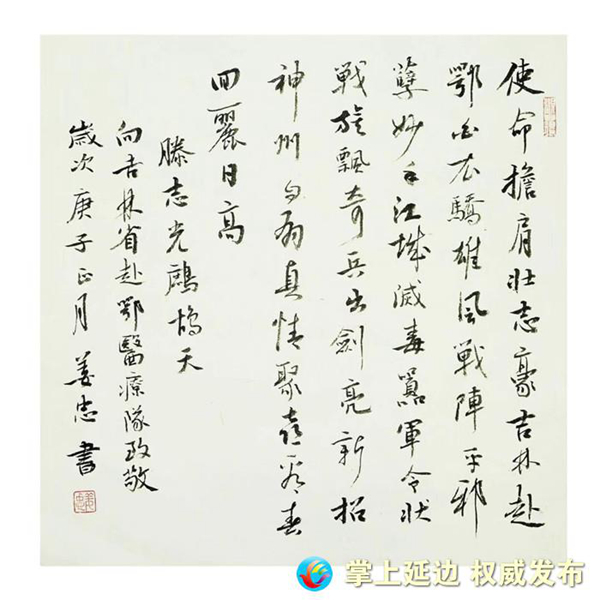 使命擔肩壯志豪吉林赴
鄂白衣驕雄風戰陣平邪
孽妙手江城滅毒囂軍令狀
戰旌飄奇兵出劍亮新招
神州真情聚喜看春
回麗日高
滕志光鷓鴣天
向吉林省赴鄂醫療隊致敬
歲次庚子正月姜忠書
掌上延边 权威发布